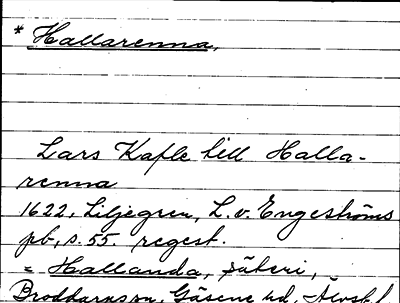 * Hallarenna,
Lars Kafle till Halla-
renna
1622, Liljegren, L. v. Engeströms
pb, s. 55. regest.
= Hallanda, säteri,
Broddarps sn, Gäsene hd, Älvsbl